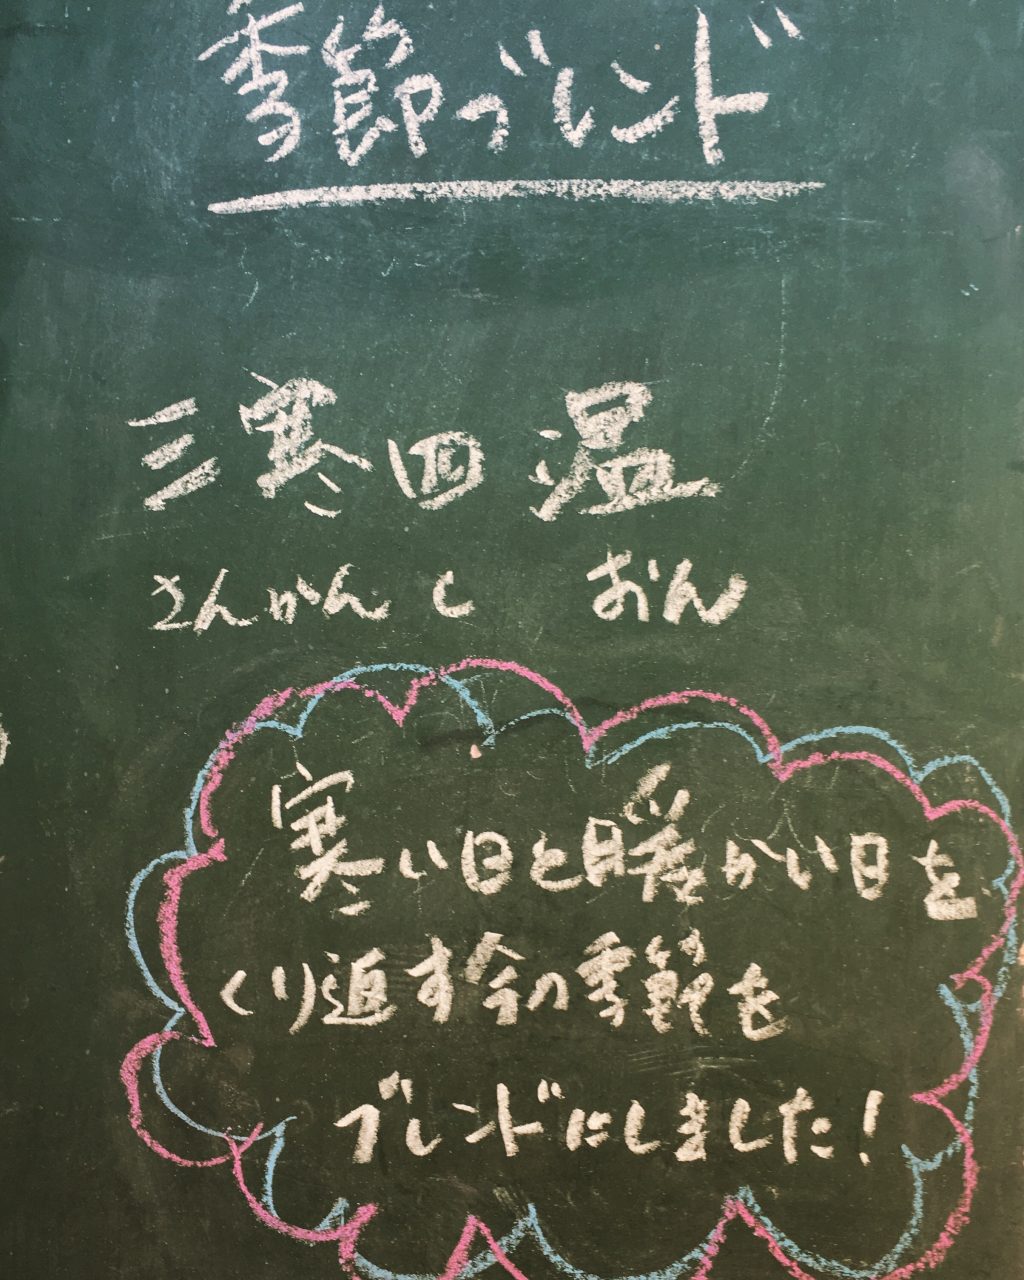 季節ブレンド
三寒四温
さんかんし おん
寒い日と暖かい日を
くり返す今の季節を
ブレンドにしました!